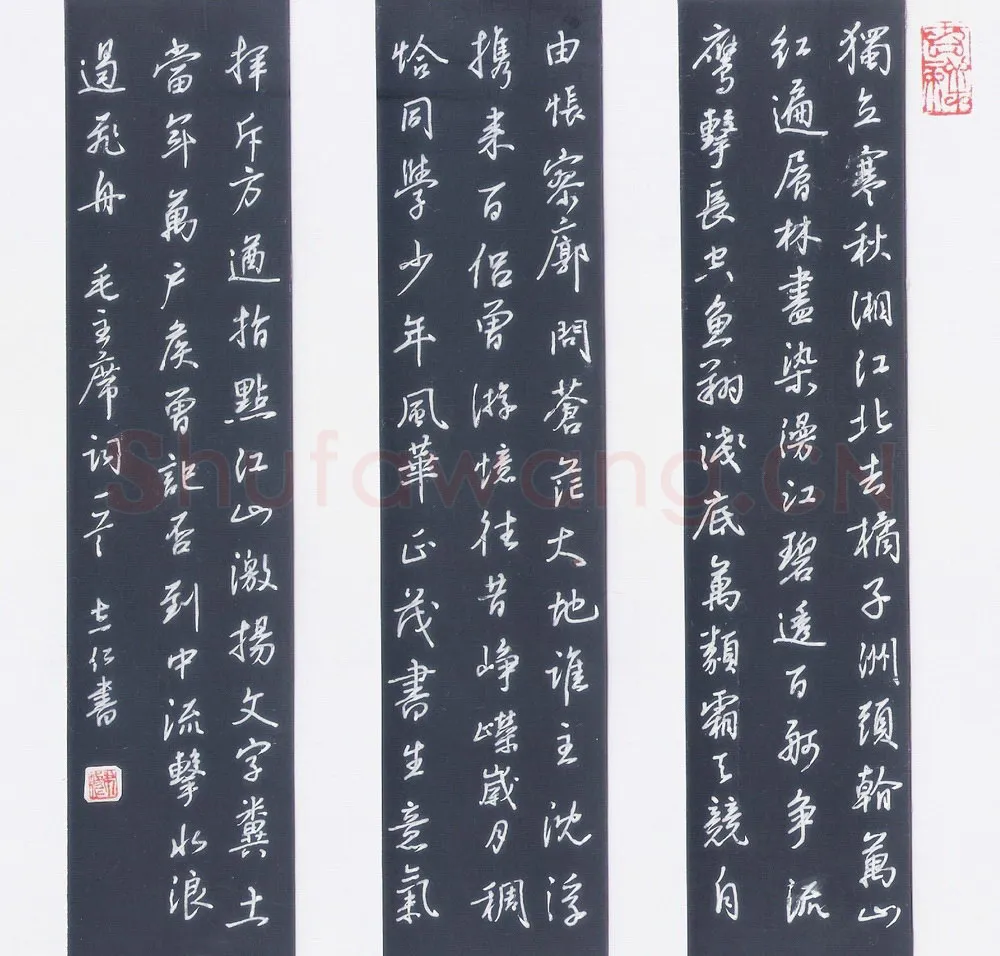 獨立寒秋湘江北去橘子洲頭翰萬山
红遍層林盡染漫江碧透百舸争流
鹰擊長空魚翔淺底萬類霜天競自
由悵寥廓問蒼茫大地誰主沈浮
携来百侣曾游憶往昔崢嶸歲月稠
恰同學少年風華正茂書生意氣
揮斥方遒指點江山激揚文字糞土
當年萬户侯曾記否到中流擊水浪
遏飛舟 毛主席詞一首 志仁書
Shufawang.CN